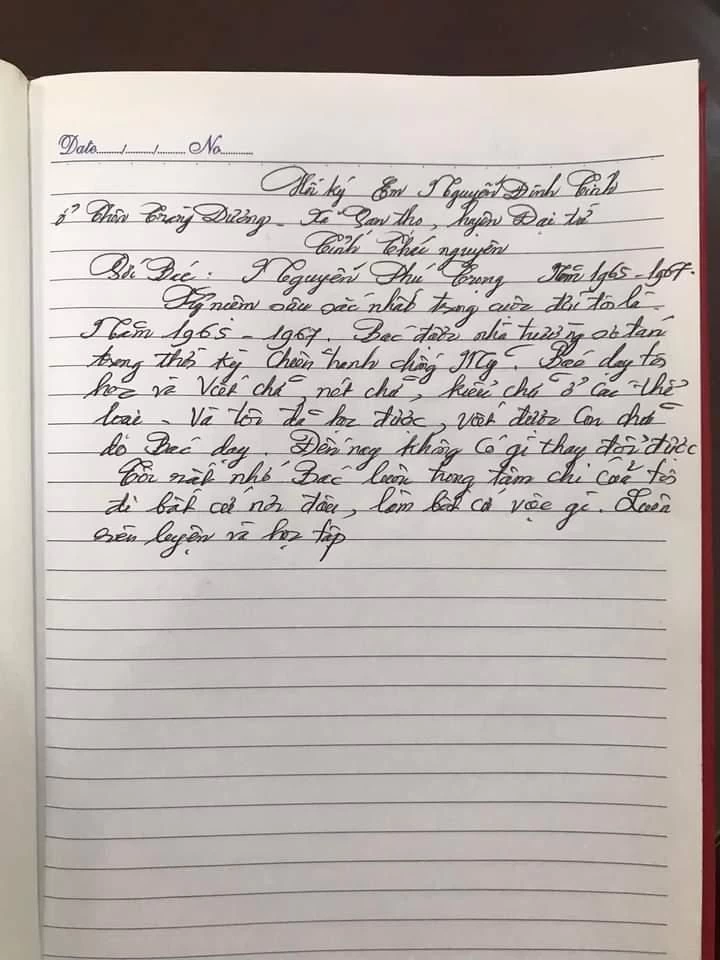 Date......../......../........ No..........
Hồi ký Em Nguyễn Đình Tính
ở Thôn Tràng Dương - Xã Vạn thọ, huyện Đại từ
Tỉnh Thái nguyên
Nguyễn Phú Trọng Năm 1965-1967.
Kỷ niệm sâu sắc nhất trong cuộc đời tôi là
Năm 1965 - 1967. Bác được nhà trường sơ tán
trong thời kỳ chiến tranh chống Mỹ. Bác dạy tôi
học và viết chữ, nét chữ, kiểu chữ ở các thể
loại - Và tôi đã học được, viết được con chữ
do Bác dạy. Đến nay không có gì thay đổi được
Tôi rất nhớ Bác luôn trong tâm chí của tôi
đi bất cứ nơi đâu, làm bất cứ việc gì. Luôn
rèn luyện và học tập